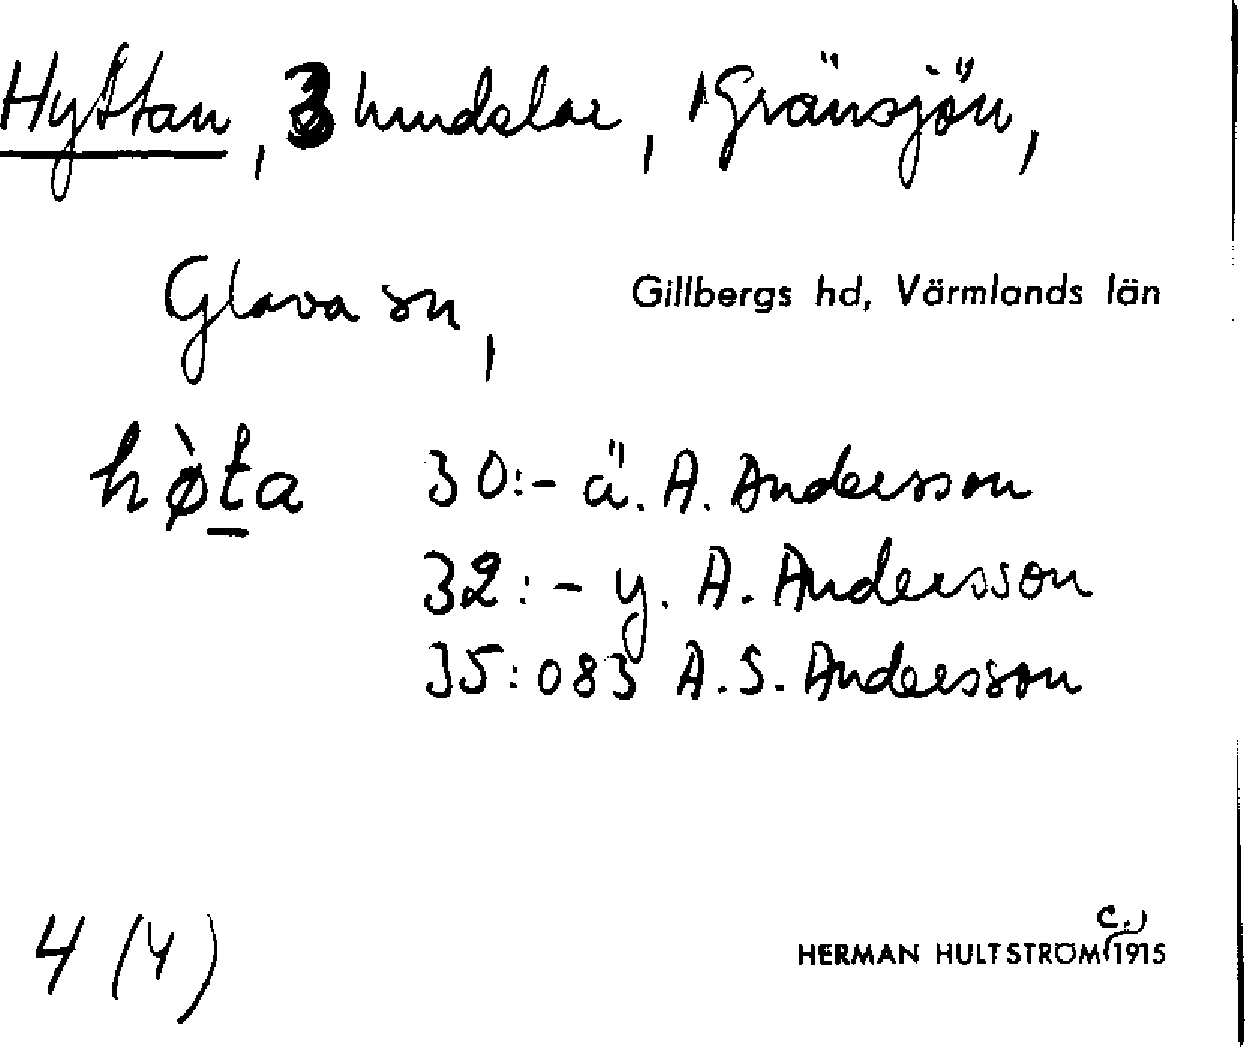 Hyttan, 3 hmdelar, Gränsjön,
Glava sn, Gillbergs hd, Värmlands län
hø̀t̲a 30:- ä. A. Andersson
32:- y. A. Andersson
35:083 A.S. Andersson
4 (4)
HERMAN HULTSTRÖM c. 1915